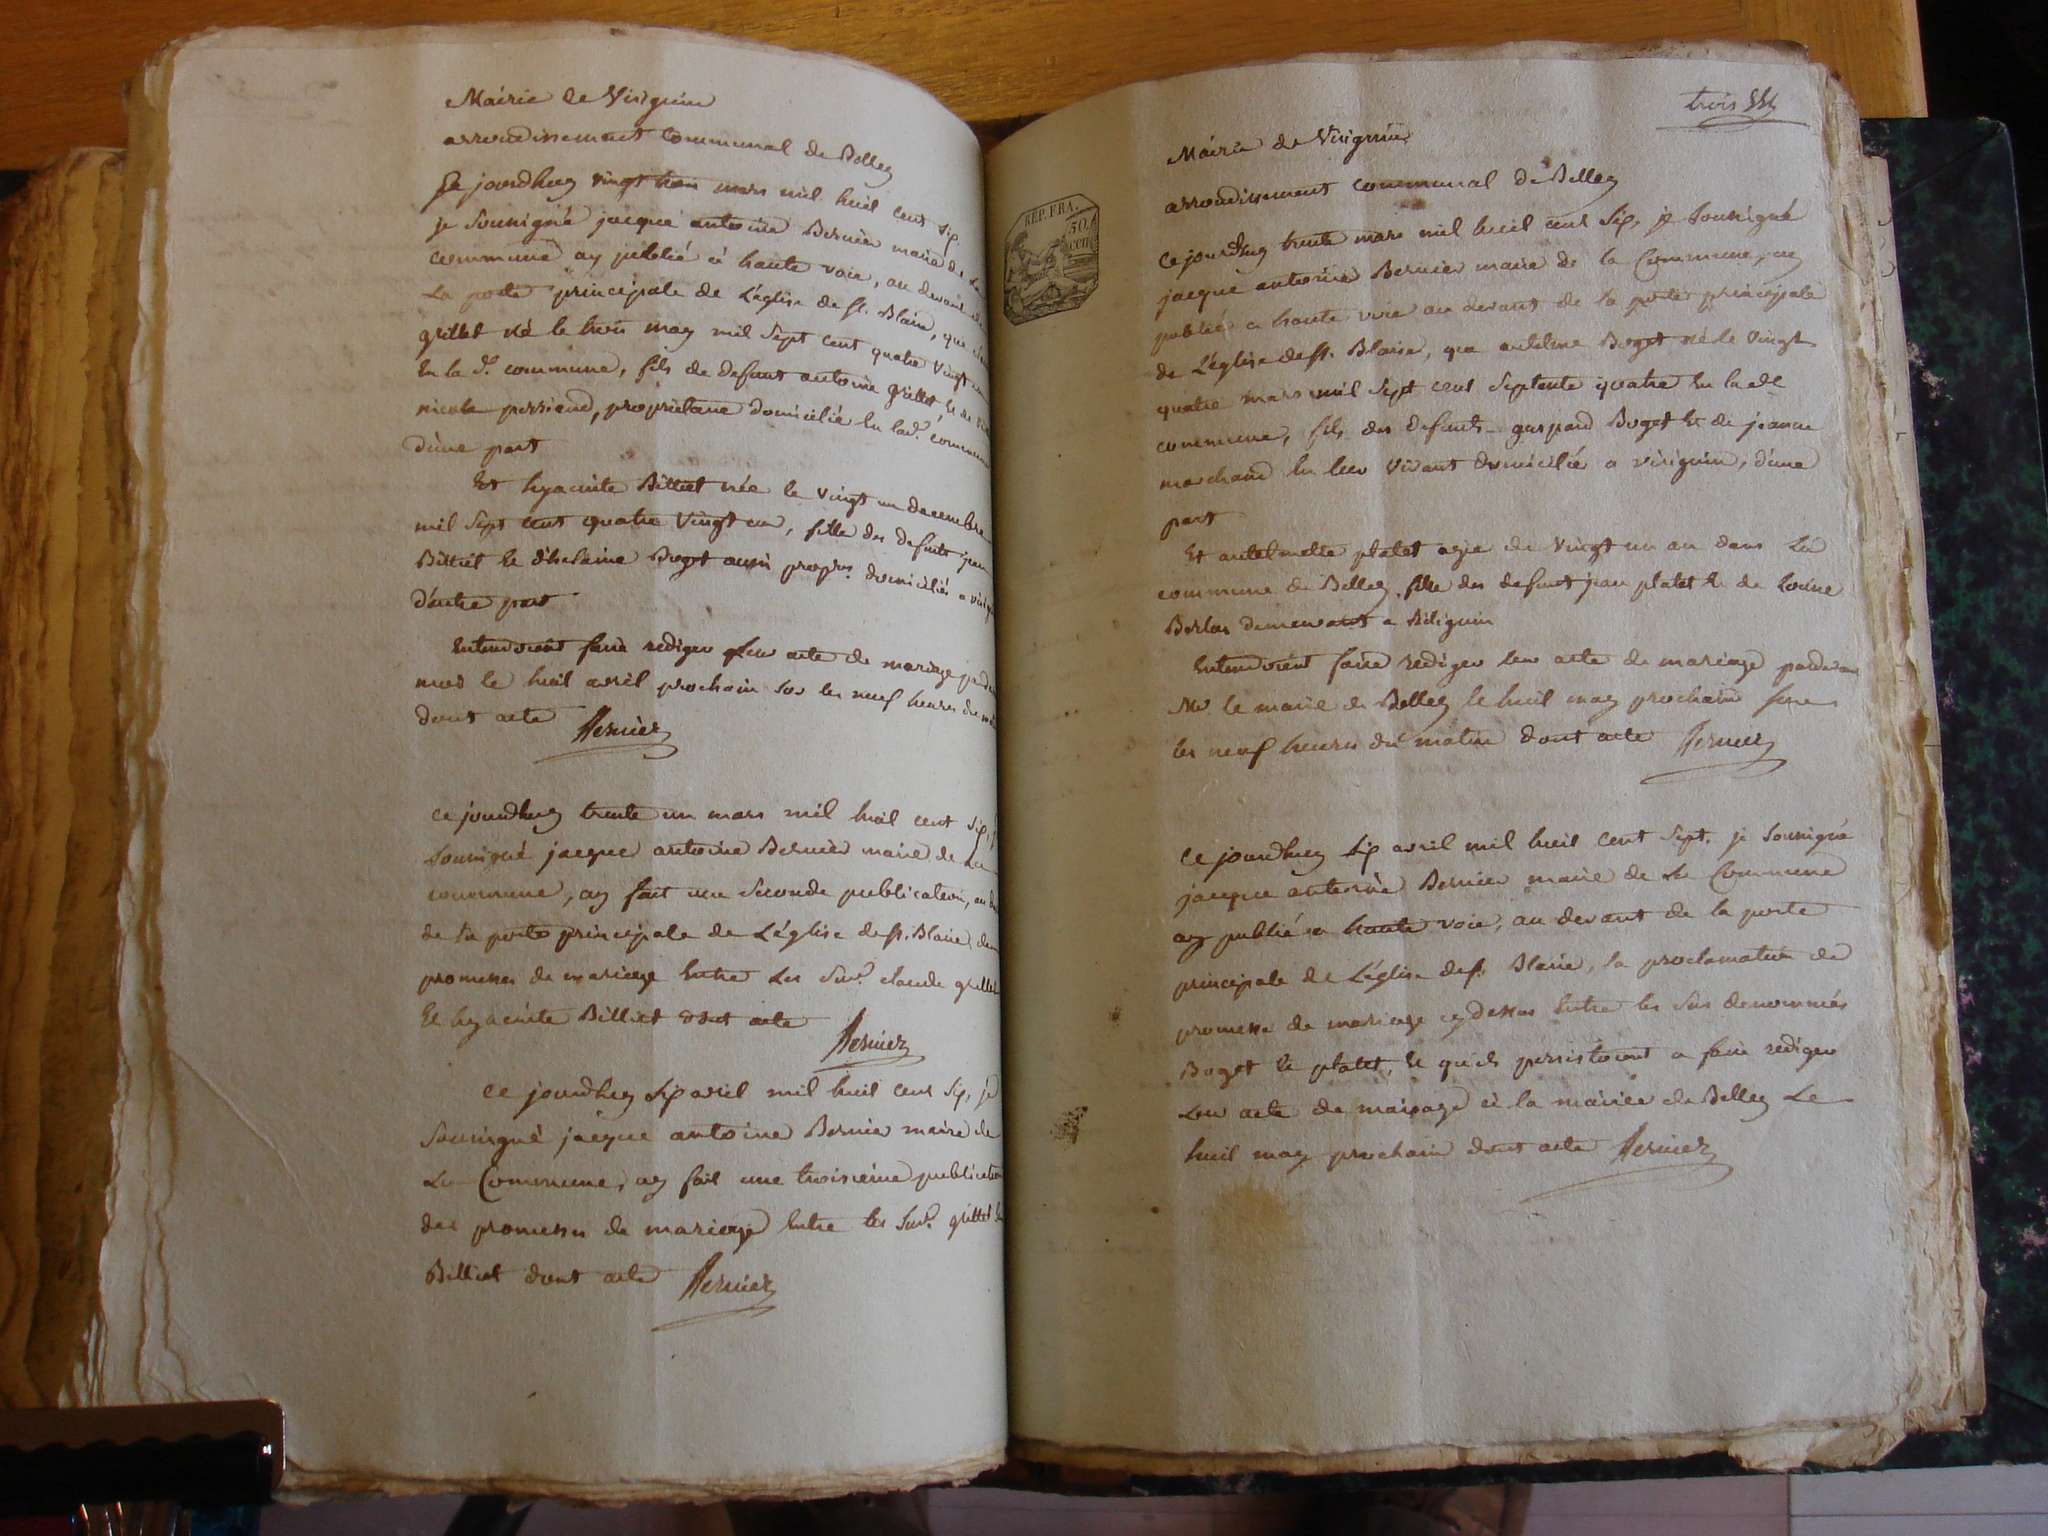 Mairie de Virignin
arrondissement communal de Belley
Ce jourdhuy vingt trois mars mil huit cent six
je soussigné jacque antoine Bernier maire de La
commune ay publié à haute voix, au devant de
La porte principale de L'église de st. Blaise, que
grillet né le trois may mil sept cent quatre vingt
En la de. commune, fils de defunt antoine grillet, et de
nicole perriand, proprietaire domicilié En lade. commune
d'une part
Et hyacinte Billiet née le vingt un decembre
mil sept cent quatre vingt un, fille des defunts jean
Billiet et Boget aussi propre. domiciliés a
d'autre part
Entendoient faire rediger leur acte de mariage
nous le huit avril prochain sur les neuf heures du
dont acte Bernier
ce jourdhuy trente un mars mil huit cent six,
soussigné jacque antoine Bernier maire de La
commune, ay fait une seconde publication, au
de la porte principale de L'église de st. Blaise, des
promesses de mariage Entre Les Sus. claude grillet
Et hyacinte Billiet dont acte
Bernier
ce jourdhuy six avril mil huit cent six, je
soussigné jacque antoine Bernier maire de
La Commune, ay fait une troisième publication
des promesses de mariage Entre les sus. grillet Et
Billiet dont acte Bernier
trois
REP. FRA.
50.
CEN
Mairie de Virignin
arrondissement communal de Belley
Ce jourdhuy trente mars mil huit cent six, je soussigné
jacque antoine Bernier maire de la Commune, ay
publié a haute voix au devant de la porte principale
de L'église de st. Blaise, que antelme Boget né le vingt
quatre mars mil sept cent septente quatre En la de
commune, fils des defunts gaspard Boget Et de jeanne
marchand En leur vivant domicilié a virignin, d'une
part
Et antelmette platet agée de vingt un an dans La
commune de Belley, fille des defunt jean platet Et de Louise
demeurant a
Entendoient faire rediger leur acte de mariage pardevant
Mr. le maire de Belley le huit may prochain sur
les neuf heures du matin dont acte Bernier
Ce jourdhuy six avril mil huit cent sept. je soussigné
jacque antoine Bernier maire de La Commune
ay publié a haute voix, au devant de la porte
principale de L'église de st Blaise, la proclamation de
promesse de mariage cy dessus Entre les sus denommés
Boget Et platet, Et qu'ils persistoient a faire rediger
Leur acte de mariage à la mairie de Belley Le
huit may prochain dont acte Bernier